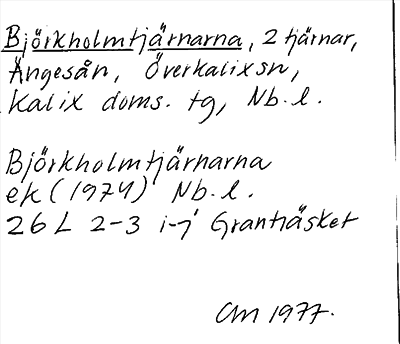 Björkholmtjärnarna, 2 tjärnar,
Ängesån, Överkalixsn,
Kalix doms. tg, Nb.l.
Björkholmtjärnarna
ek (1974) Nb.l.
26L 2-3 i-j Granträsket
CM 1977.